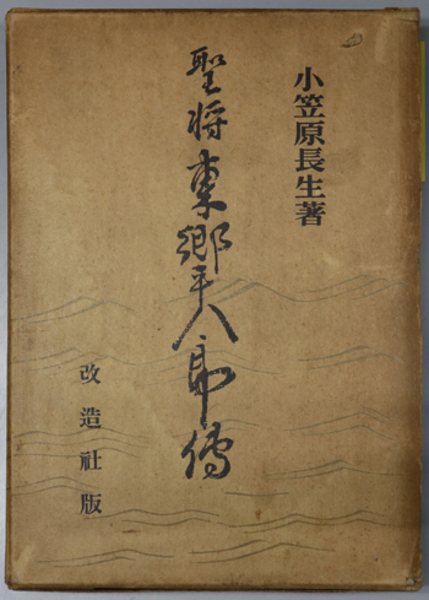 小笠原長生著
聖将東郷平八郎傳
改造社版